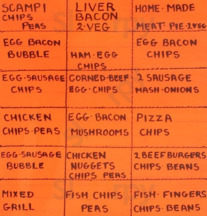 SCAMPI
CHIPS
PEAS
LIVER
BACON
2·VEG
HOME·MADE
MEAT PIE·2VEG
EGG BACON
BUBBLE
HAM·EGG
CHIPS
EGG BACON
CHIPS
EGG·SAUSAGE
CHIPS
CORNED·BEEF
EGG·CHIPS
2 SAUSAGE
MASH·ONIONS
CHICKEN
CHIPS·PEAS
EGG·BACON
MUSHROOMS
PIZZA
CHIPS
EGG·SAUSAGE
BUBBLE
CHICKEN
NUGGETS
CHIPS PEAS
2 BEEFBURGERS
CHIPS·BEANS
MIXED
GRILL
FISH CHIPS
PEAS
FISH·FINGERS
CHIPS·BEANS